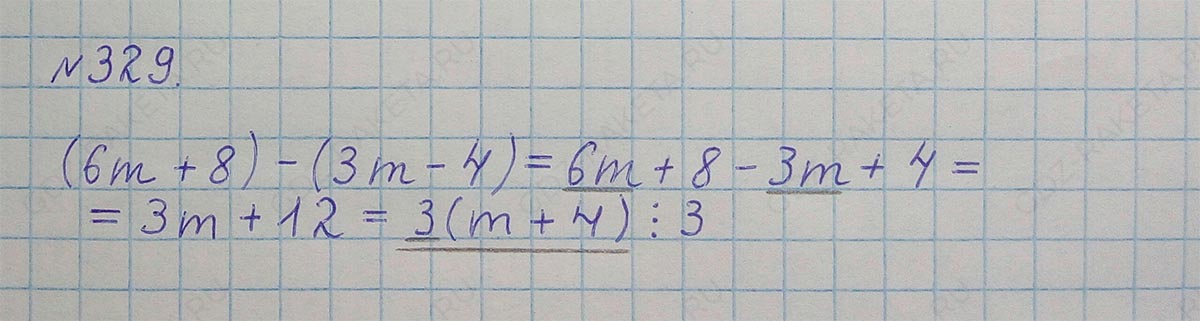 №329.
(6m + 8) - (3m - 4) = 6m + 8 - 3m + 4 =
= 3m + 12 = 3(m + 4) ⋮ 3